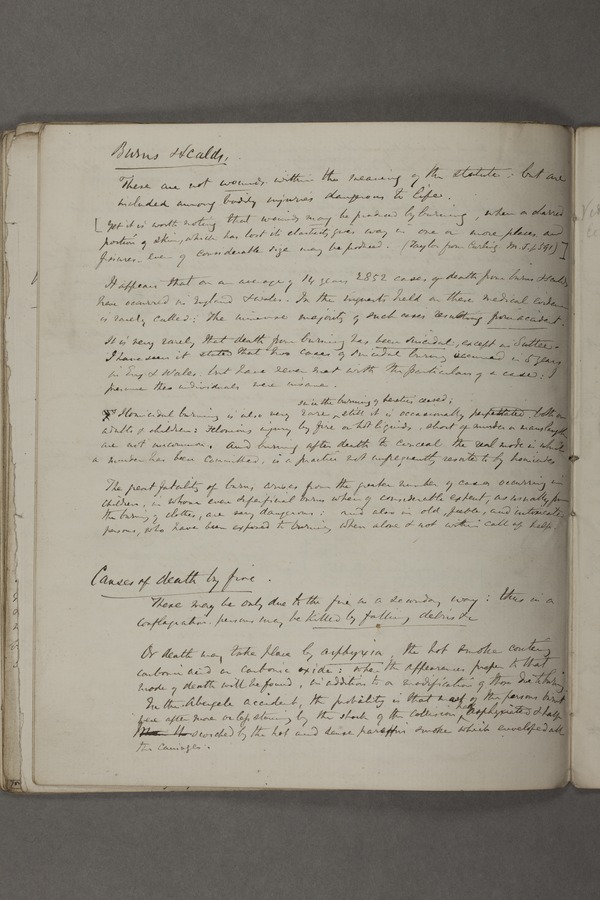 Burns & Scalds.
These are not wounds within the meaning of the statute: but are
included among bodily injuries dangerous to life.
[Yet it is worth noting that wounds may be produced by burning, when a charred
portion of skin, which has lost its elasticity gives way in one or more places, and
fissures - even of considerable size may be produced. (Taylor from Curling.
It appears that on an average of 14 years 2852 cases of death from burns & scalds
have occurred in England & Wales. In the inquests held on these medical evidence
is rarely called: the immense majority of such cases resulting from accident.
It is very rarely, that death from burning has been suicidal, except in Suttees.
I have seen it stated that two cases of suicidal burning occurred in 5 years
in Eng & Wales. but have never met with the particulars of a case: I
presume these individuals were insane.
since the burning of heretics ceased;
Homicidal burning is also very rare, still it is occasionally perpetrated both on
adults & children: Felonious injury by fire or hot liquids, short of murder or manslaughter
are not uncommon. And burning after death to conceal the real mode in which
a murder has been committed, is a practice not infrequently resorted to by homicides.
The great fatality of burns, arises from the greater number of cases occurring in
children, in whom even superficial burns when of considerable extent, as usually from
the burning of clothes, are very dangerous: and also in old, feeble, and intoxicated
persons, who have been exposed to burning when alone & not within call of help.
Causes of death by fire.
These may be only due to the fire in a secondary way: thus in a
conflagration persons may be killed by falling debris &c
Or death may take place by asphyxia, the hot smoke containing
carbonic acid or carbonic oxide: when the appearances proper to that
mode of death will be found, in addition to or modification of those due to burning.
In the Abergele accident, the probability is that most of the persons burnt
were after more or less stunning by the shock of the collision, asphyxiated & half
scorched by the hot and dense paraffin smoke which enveloped all
the carriages.